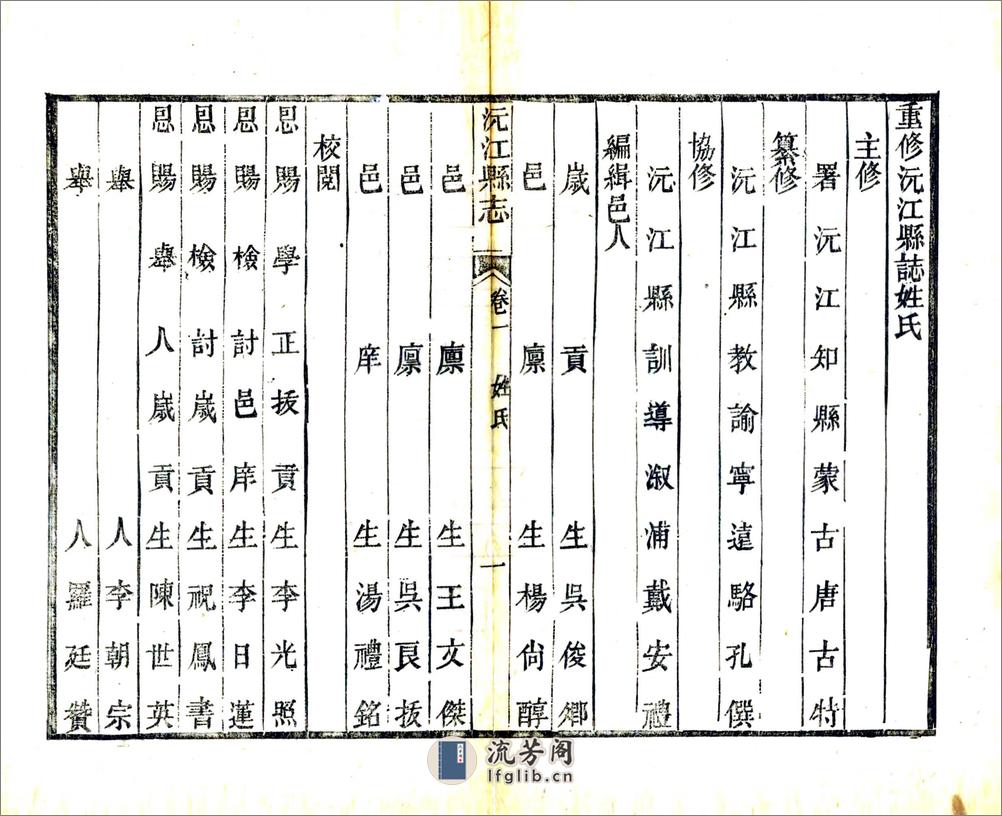 重修沅江縣誌姓氏
主修
署沅江知縣蒙古唐古特
纂修
沅江縣教諭寧遠駱孔僎
協修
沅江縣訓導溆浦戴安禮
編緝邑人
歲貢生吳俊鄉
邑廩生楊尙醇
沅江縣志
卷一
姓氏
一
邑廩生王文傑
邑廩生吳良㧞
邑庠生湯禮銘
校閱
恩賜學正㧞貢生李光照
恩賜檢討邑庠生李日蓮
恩賜檢討歲貢生祝鳳書
恩賜舉人歲貢生陳世英
舉人李朝宗
舉人羅廷贊
流芳阁
lfglib.cn